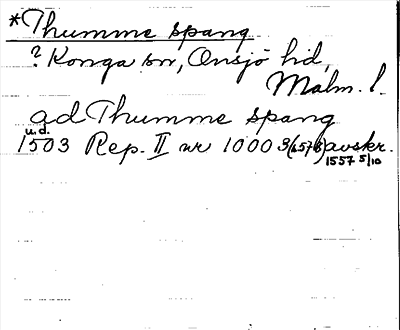 *Thumme spang
? Konga sn, Onsjö hd,
Malm. l.
ad Thumme spang
u.d.
1503 Rep. II nr 10003 (6576) avskr.
1557 5/10